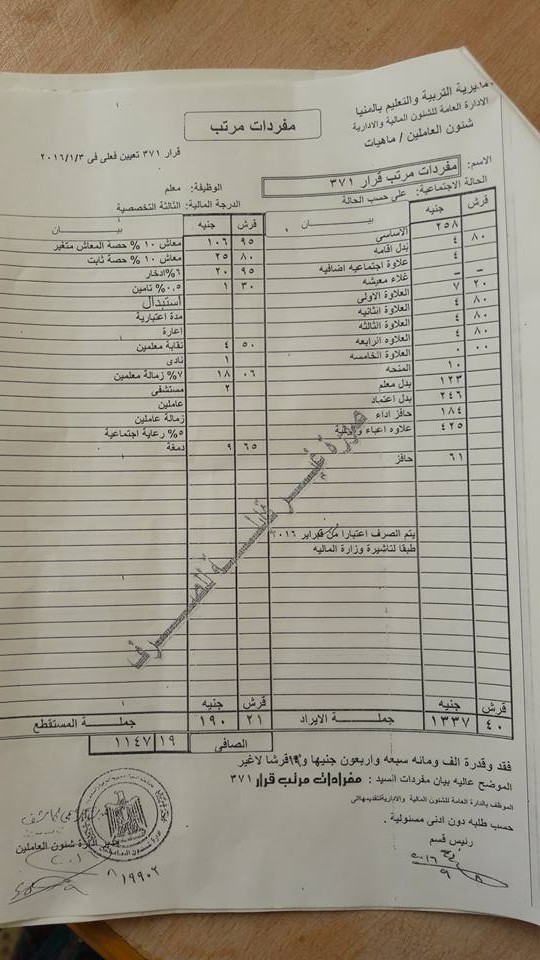 مديرية التربية والتعليم بالمنيا
الادارة العامة للشئون المالية والادارية
شئون العاملين / ماهيات
مفردات مرتب
قرار ٣٧١ تعيين فعلى فى ٢٠١٦/١/٣
الاسم: مفردات مرتب قرار ٣٧١
الوظيفة: معلم
الحالة الاجتماعية: على حسب الحالة
الدرجة المالية: الثالثة التخصصية
قرش جنيه بيــــــان
٢٥٨ الاساسى
٨٠ ٤ بدل اقامه
٤ علاوة اجتماعيه اضافيه
– – غلاء معيشه
٢٠ ٧ العلاوة الاولى
٨٠ ٤ العلاوة الثانيه
٨٠ ٤ العلاوة الثالثه
٨٠ ٤ العلاوه الرابعه
٠٠ ٠ العلاوة الخامسه
١٠ المنحه
١٢٣ بدل معلم
٢٤٦ بدل اعتماد
١٨٤ حافز اداء
٤٢٥ علاوه اعباء وظيفية
٦١ حافز
يتم الصرف اعتبارا من فبراير ٢٠١٦
طبقا لتاشيرة وزارة الماليه
قرش جنيه
٤٠ ١٣٣٧ جملـــة الايراد
قرش جنيه بيــــــان
٩٥ ١٠٦ معاش ١٠ % حصة المعاش متغير
٨٠ ٢٥ معاش ١٠ % حصة ثابت
٩٥ ٢٠ ٦%ادخار
٣٠ ١ ٠.٥% تامين
استبدال
مدة اعتبارية
اعارة
٥٠ ٤ نقابة معلمين
١ نادى
٠٦ ١٨ ٧% زمالة معلمين
٢ مستشفى
عاملين
زمالة عاملين
٥% رعاية اجتماعية
٦٥ ٩ دمغة
قرش جنيه
٢١ ١٩٠ جملـــة المستقطع
الصافى ١٩ ١١٤٧
صورة غير قابلة للصرف
فقد وقدرة الف ومائه سبعه واربعون جنيها و١٩قرشا لاغير
الموضح عاليه بيان مفردات السيد : مفرادات مرتب قرار ٣٧١
حسب طلبه دون ادنى مسئولية .
رئيس قسم
مدير ادارة شئون العاملين
١٩٩٠٢